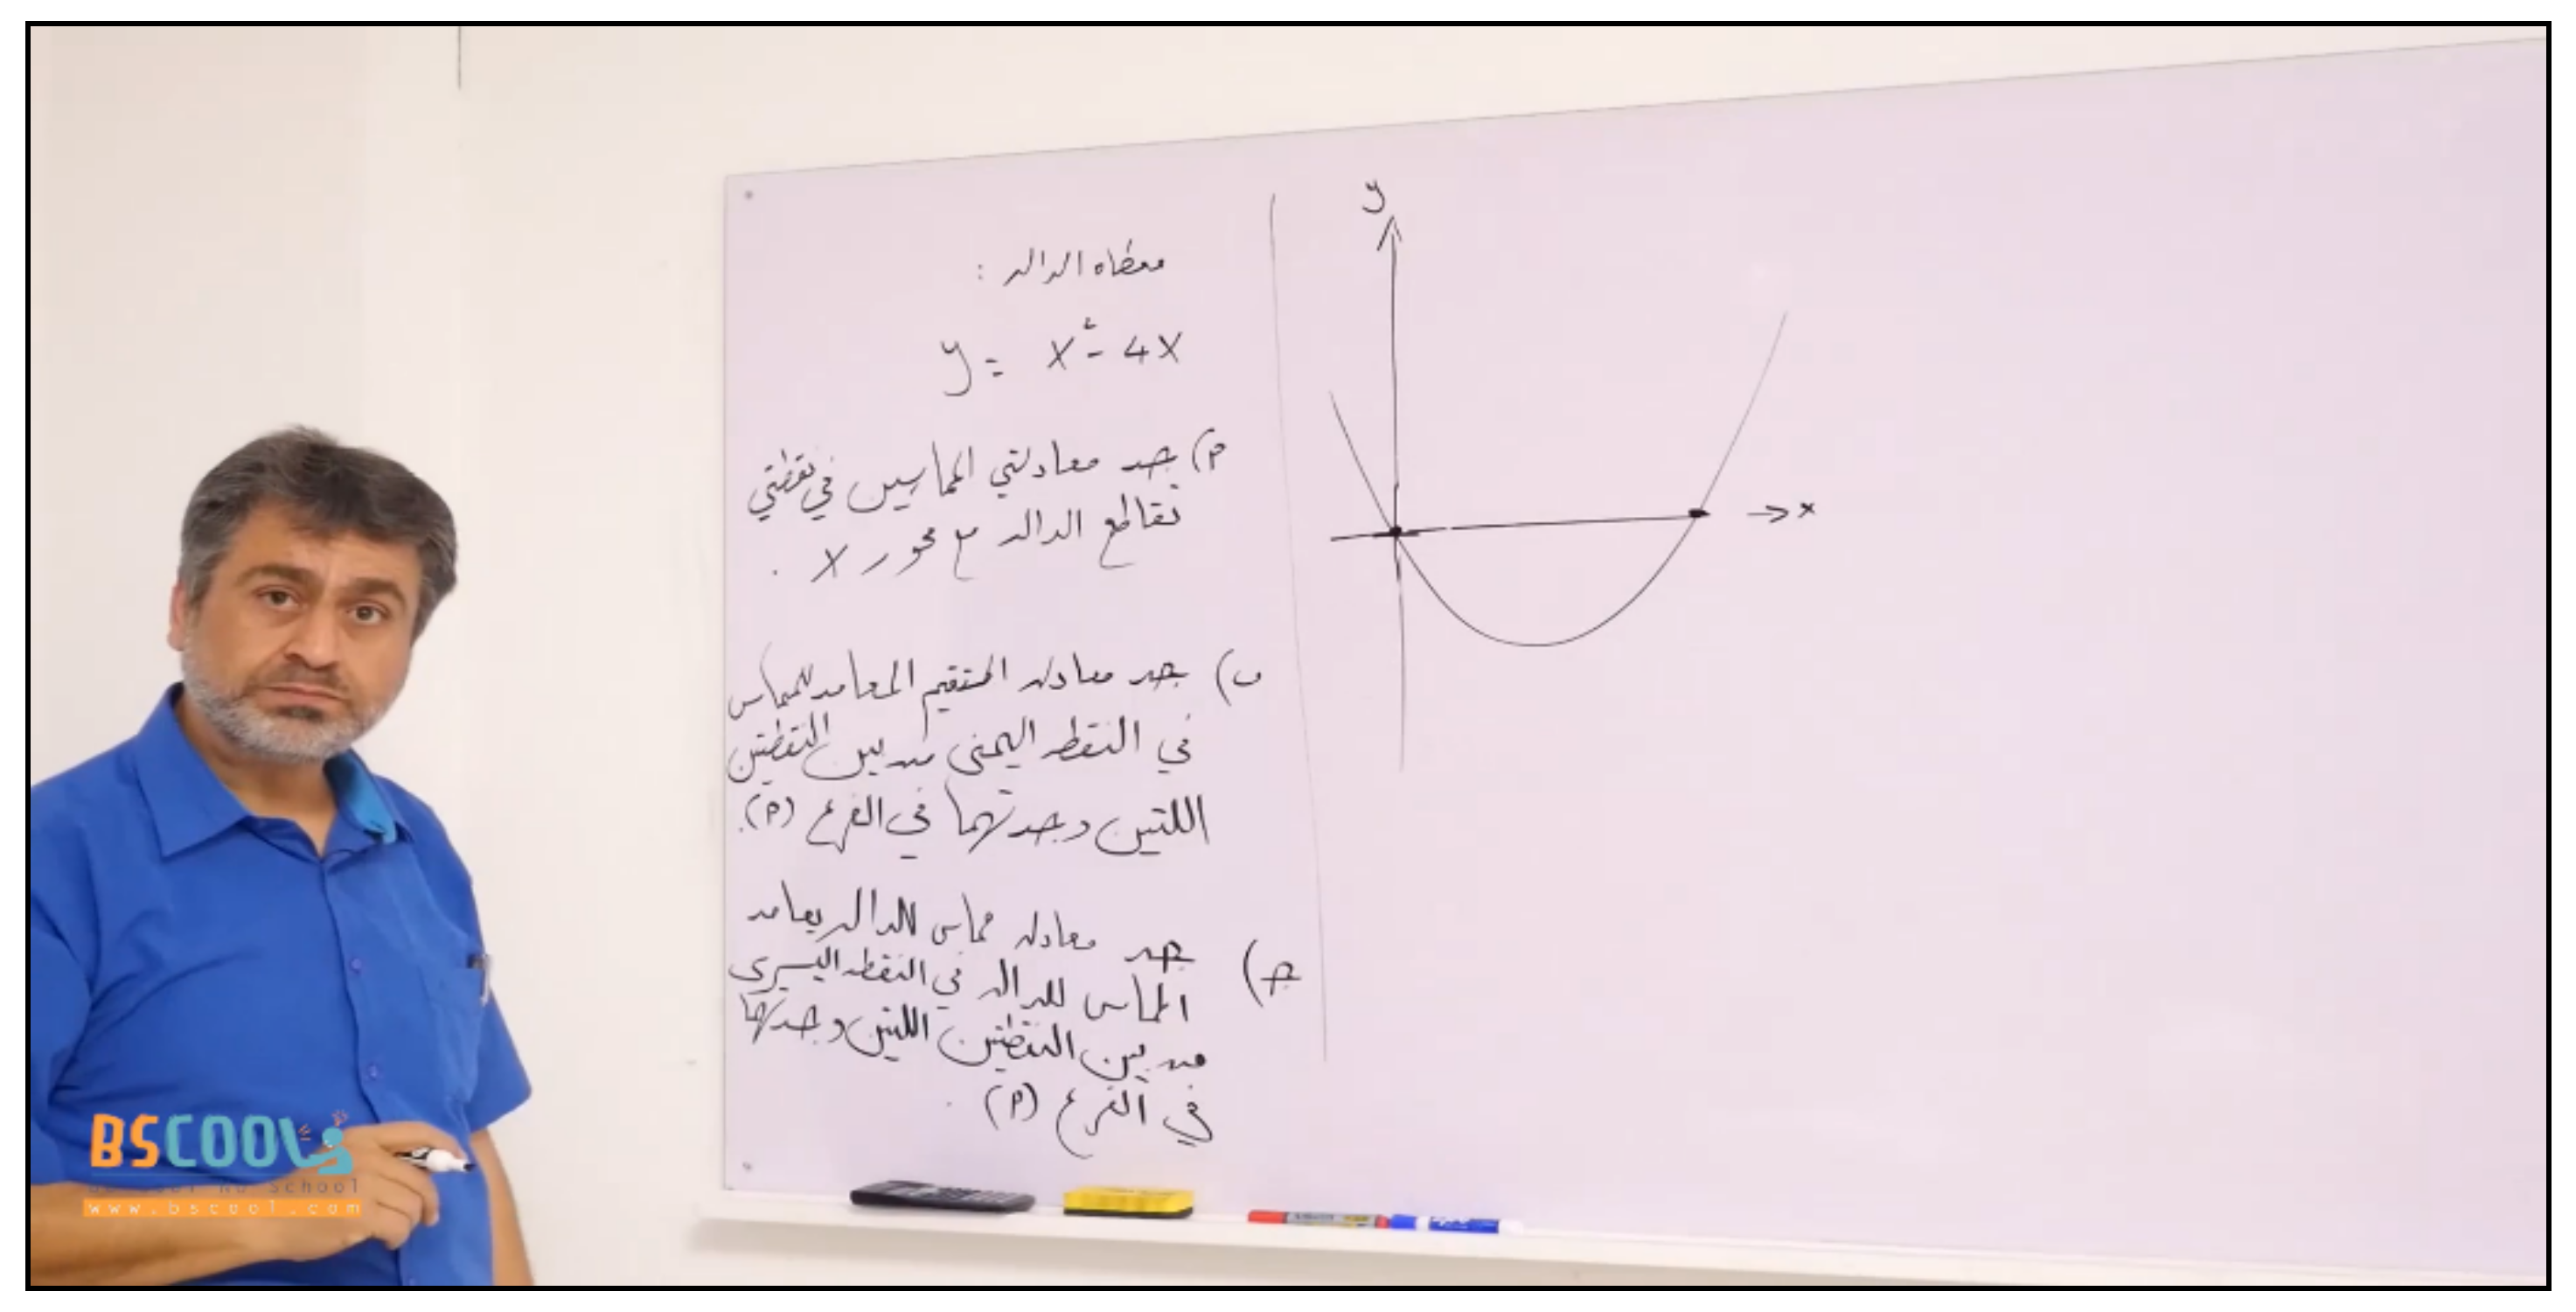 معطاه الداله :
y = x² - 4x
أ) جد معادلتي المماسين في نقطتي
تقاطع الداله مع محور x .
ب) جد معادله المستقيم المعامد للمماس
في النقطه اليمنى من بين النقطتين
اللتين وجدتهما في الفرع (أ).
جـ) جد معادله مماس للداله يعامد
المماس للداله في النقطه اليسرى
من بين النقطتين اللتين وجدتهما
في الفرع (أ) .
y
x
BSCOOL
School
www.bscool.com